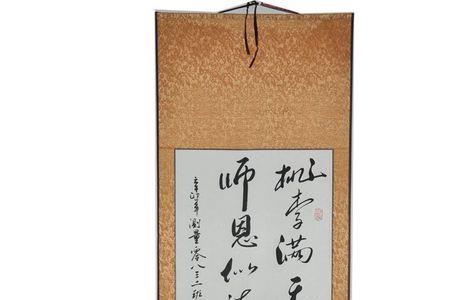 桃李满天
师恩似
辛卯年测量零八三二班